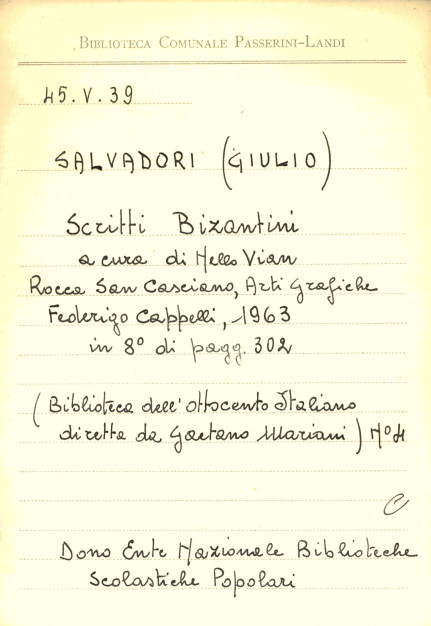 BIBLIOTECA COMUNALE PASSERINI-LANDI
45.V.39
SALVADORI (GIULIO)
Scritti Bizantini
a cura di Nello Vian
Rocca San Casciano, Arti Grafiche
Federigo Cappelli, 1963
in 8° di pagg. 302
(Biblioteca dell'Ottocento Italiano
diretta da Gaetano Mariani) N° 4
C
Dono Ente Nazionale Biblioteche
Scolastiche Popolari